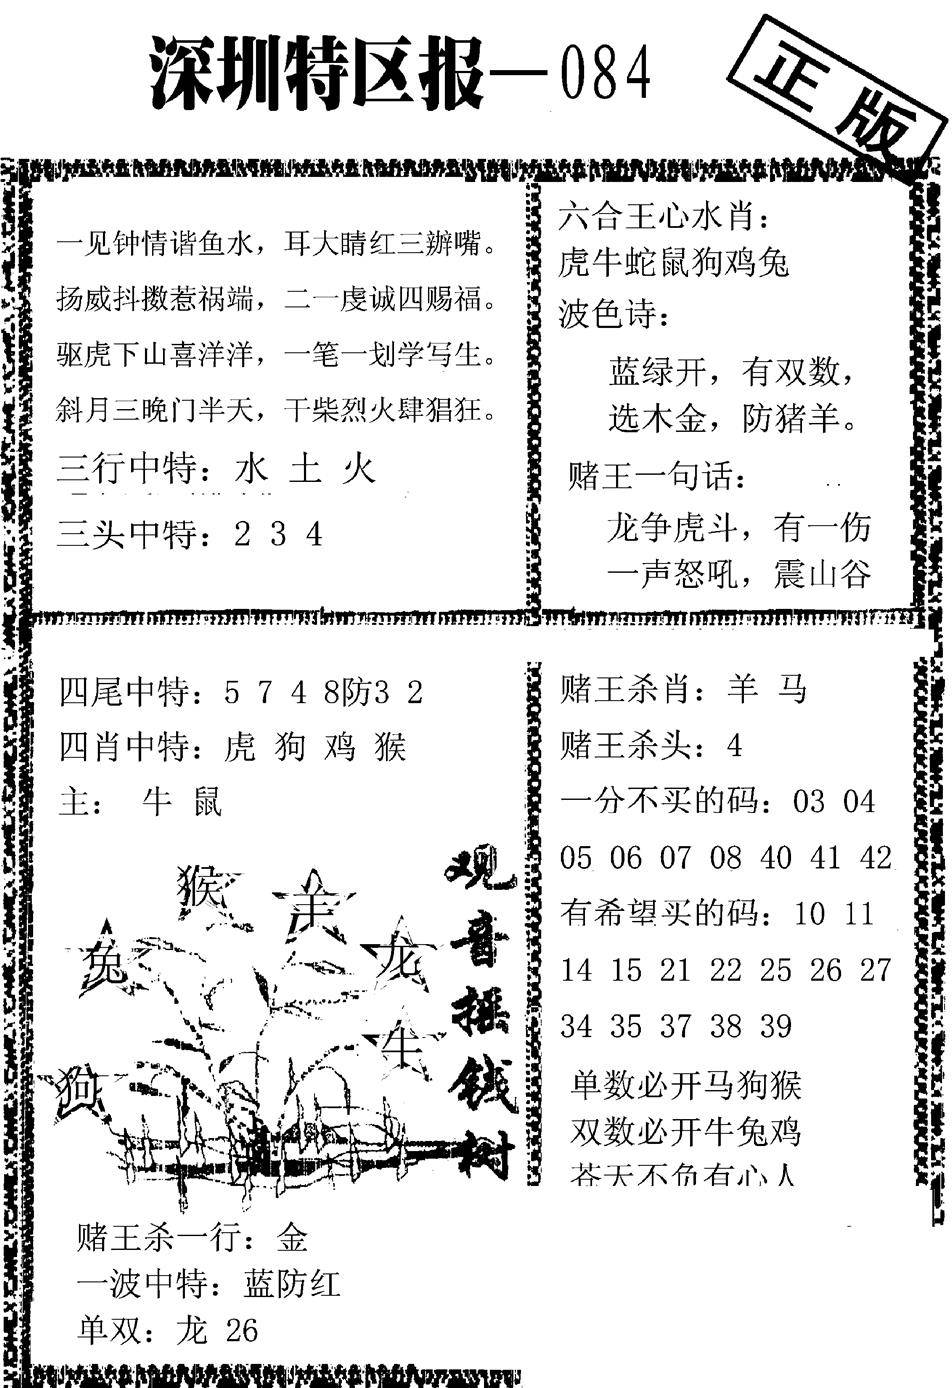 深圳特区报—084
正版
一见钟情谐鱼水，耳大睛红三瓣嘴。
扬威抖擞惹祸端，二一虔诚四赐福。
驱虎下山喜洋洋，一笔一划学写生。
斜月三晚门半天，干柴烈火肆猖狂。
三行中特：水 土 火
三头中特：2 3 4
六合王心水肖：
虎牛蛇鼠狗鸡兔
波色诗：
蓝绿开，有双数，
选木金，防猪羊。
赌王一句话：
龙争虎斗，有一伤
一声怒吼，震山谷
四尾中特：5 7 4 8防3 2
四肖中特：虎 狗 鸡 猴
主： 牛 鼠
猴
羊
兔
龙
牛
狗
观音摇钱树
赌王杀一行：金
一波中特：蓝防红
单双：龙 26
赌王杀肖：羊 马
赌王杀头：4
一分不买的码：03 04
05 06 07 08 40 41 42
有希望买的码：10 11
14 15 21 22 25 26 27
34 35 37 38 39
单数必开马狗猴
双数必开牛兔鸡
苍天不负有心人